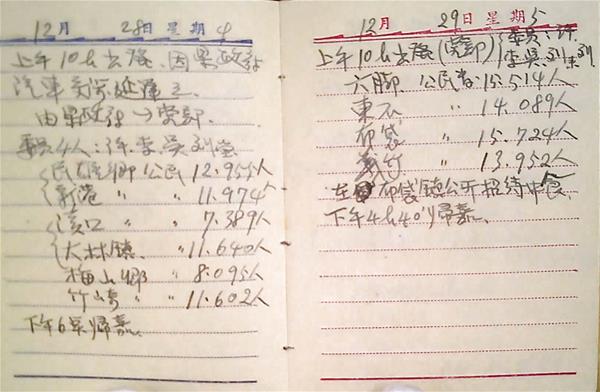 12月 28日 星期4
上午10h出張、因縣政府
汽車
由縣政府→
委員4人：許、李、吳、劉
民雄鄉 公民 12.955人
新港 〃 〃 11.974〃
溪口 〃 〃 7.389人
大林鎮 〃 11.640人
梅山鄉 〃 8.095人
竹崎 〃 〃 11.602人
下午6 歸嘉。
12月 29日 星期5
上午10h出張
委員：許
李、吳、劉
六脚 公民 15.514人
東石 〃 14.089人
布袋 〃 15.724人
義竹 〃 13.952人
在 布袋鎮公所招待中食
下午4h40'歸嘉。